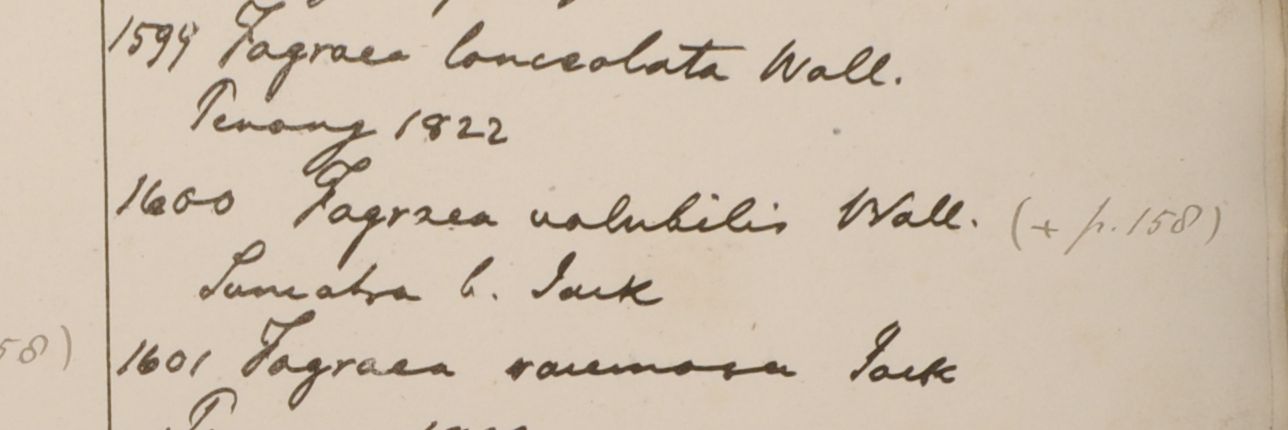 1599 Fagraea lanceolata Wall.
Penang 1822
1600 Fagraea volubilis Wall. (+ p. 158)
Sumatra C. Jack
58) 1601 Fagraea racemosa Jack